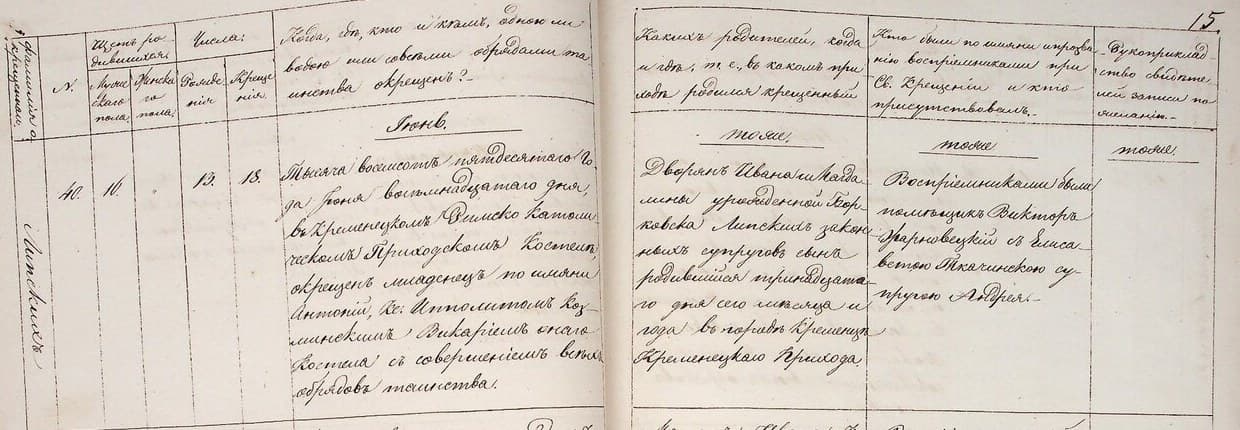 15.
Фамилія о-
крещеннаго.
N.
Щетъ ро-
дившихся:
Муже-
скаго
пола.
Женска-
го
пола.
Числа:
Рожде-
нія.
Креще-
нія.
Когда, гдѣ, кто и кѣмъ, одною ли
водою или совсѣми обрядами та-
инства окрещенъ?
Какихъ родителей, когда
и гдѣ, т. е., въ какомъ при-
ходѣ родился крещенный
Кто были по имяни и прозва-
нію воспріемниками при
Св. Крещеніи и кто
присутствовалъ.
Рукоприклад-
ство свидѣте-
лей записи по
желанію.
Іюнь.
тоже.
тоже
тоже.
Липскихъ
40.
16.
"
13.
18.
Тысяча восемсотъ пятдесятаго Го-
да Іюня восьмнадцатаго дня,
въ Кременецкомъ Римско Католи-
ческомъ Приходскомъ Костелѣ,
окрещенъ младенецъ по имяни
Антоній, Кс: Ипполитомъ
Викаріемъ онаго
Костела съ совершеніемъ всѣхъ
обрядовъ таинства.
Дворянъ Ивана и Магда-
лины урожденной
Липскихъ закон-
ныхъ супруговъ сынъ
родившійся тринадцата-
го дня сего мѣсяца и
года въ городѣ Кременцѣ
Кременецкаго Прихода.
Воспріемниками были
помѣщикъ Викторъ
Жарновецкій съ Елиса-
ветою Ткачинскою су-
пругою Андрея.